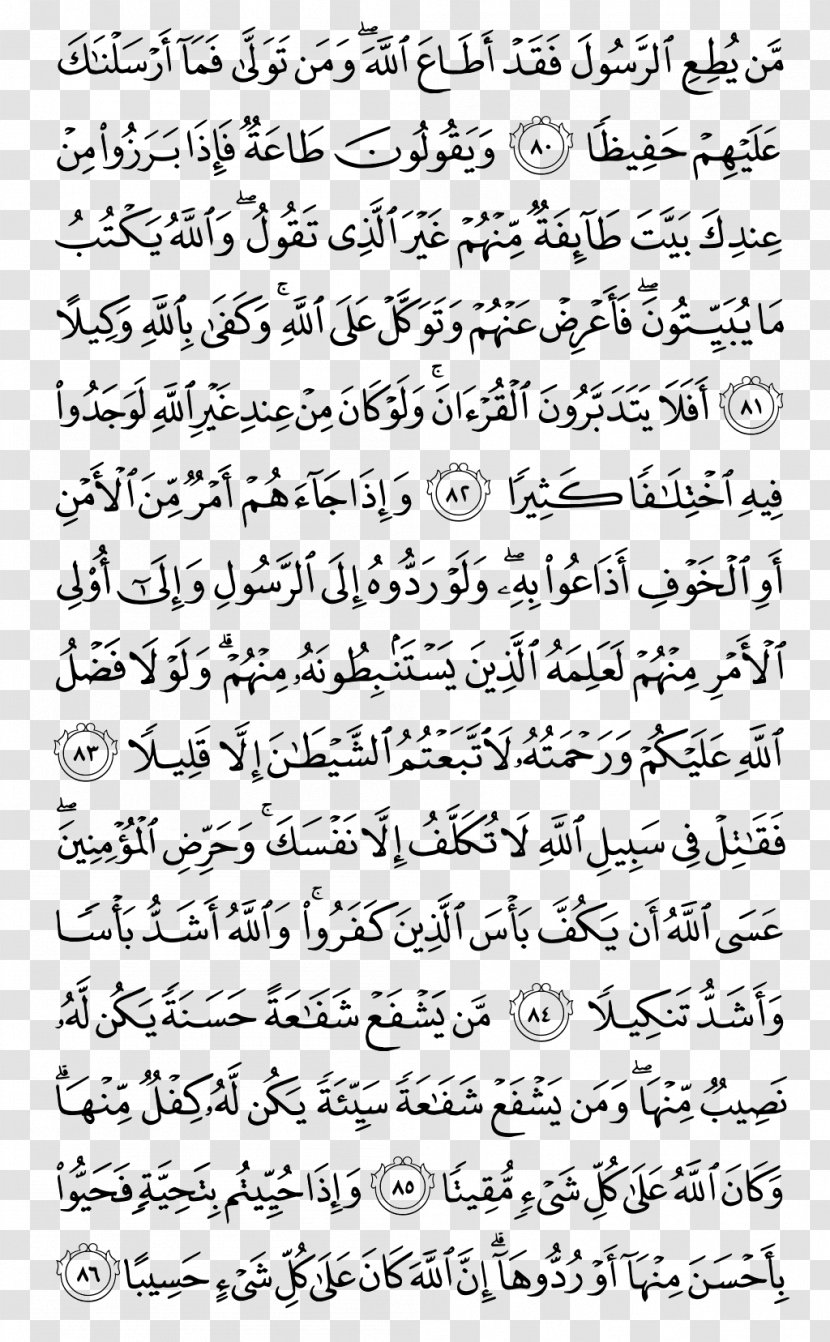 مَّن يُطِعِ ٱلرَّسُولَ فَقَدۡ أَطَاعَ ٱللَّهَۖ وَمَن تَوَلَّىٰ فَمَآ أَرۡسَلۡنَٰكَ
عَلَيۡهِمۡ حَفِيظٗا ٨٠ وَيَقُولُونَ طَاعَةٞ فَإِذَا بَرَزُواْ مِنۡ
عِندِكَ بَيَّتَ طَآئِفَةٞ مِّنۡهُمۡ غَيۡرَ ٱلَّذِي تَقُولُۖ وَٱللَّهُ يَكۡتُبُ
مَا يُبَيِّتُونَۖ فَأَعۡرِضۡ عَنۡهُمۡ وَتَوَكَّلۡ عَلَى ٱللَّهِۚ وَكَفَىٰ بِٱللَّهِ وَكِيلًا
٨١ أَفَلَا يَتَدَبَّرُونَ ٱلۡقُرۡءَانَۚ وَلَوۡ كَانَ مِنۡ عِندِ غَيۡرِ ٱللَّهِ لَوَجَدُواْ
فِيهِ ٱخۡتِلَٰفٗا كَثِيرٗا ٨٢ وَإِذَا جَآءَهُمۡ أَمۡرٞ مِّنَ ٱلۡأَمۡنِ
أَوِ ٱلۡخَوۡفِ أَذَاعُواْ بِهِۦۖ وَلَوۡ رَدُّوهُ إِلَى ٱلرَّسُولِ وَإِلَىٰٓ أُوْلِي
ٱلۡأَمۡرِ مِنۡهُمۡ لَعَلِمَهُ ٱلَّذِينَ يَسۡتَنۢبِطُونَهُۥ مِنۡهُمۡۗ وَلَوۡلَا فَضۡلُ
ٱللَّهِ عَلَيۡكُمۡ وَرَحۡمَتُهُۥ لَٱتَّبَعۡتُمُ ٱلشَّيۡطَٰنَ إِلَّا قَلِيلٗا ٨٣
فَقَٰتِلۡ فِي سَبِيلِ ٱللَّهِ لَا تُكَلَّفُ إِلَّا نَفۡسَكَۚ وَحَرِّضِ ٱلۡمُؤۡمِنِينَۖ
عَسَى ٱللَّهُ أَن يَكُفَّ بَأۡسَ ٱلَّذِينَ كَفَرُواْۚ وَٱللَّهُ أَشَدُّ بَأۡسٗا
وَأَشَدُّ تَنكِيلٗا ٨٤ مَّن يَشۡفَعۡ شَفَٰعَةً حَسَنَةٗ يَكُن لَّهُۥ
نَصِيبٞ مِّنۡهَاۖ وَمَن يَشۡفَعۡ شَفَٰعَةٗ سَيِّئَةٗ يَكُن لَّهُۥ كِفۡلٞ مِّنۡهَاۗ
وَكَانَ ٱللَّهُ عَلَىٰ كُلِّ شَيۡءٖ مُّقِيتٗا ٨٥ وَإِذَا حُيِّيتُم بِتَحِيَّةٖ فَحَيُّواْ
بِأَحۡسَنَ مِنۡهَآ أَوۡ رُدُّوهَآۗ إِنَّ ٱللَّهَ كَانَ عَلَىٰ كُلِّ شَيۡءٍ حَسِيبًا ٨٦